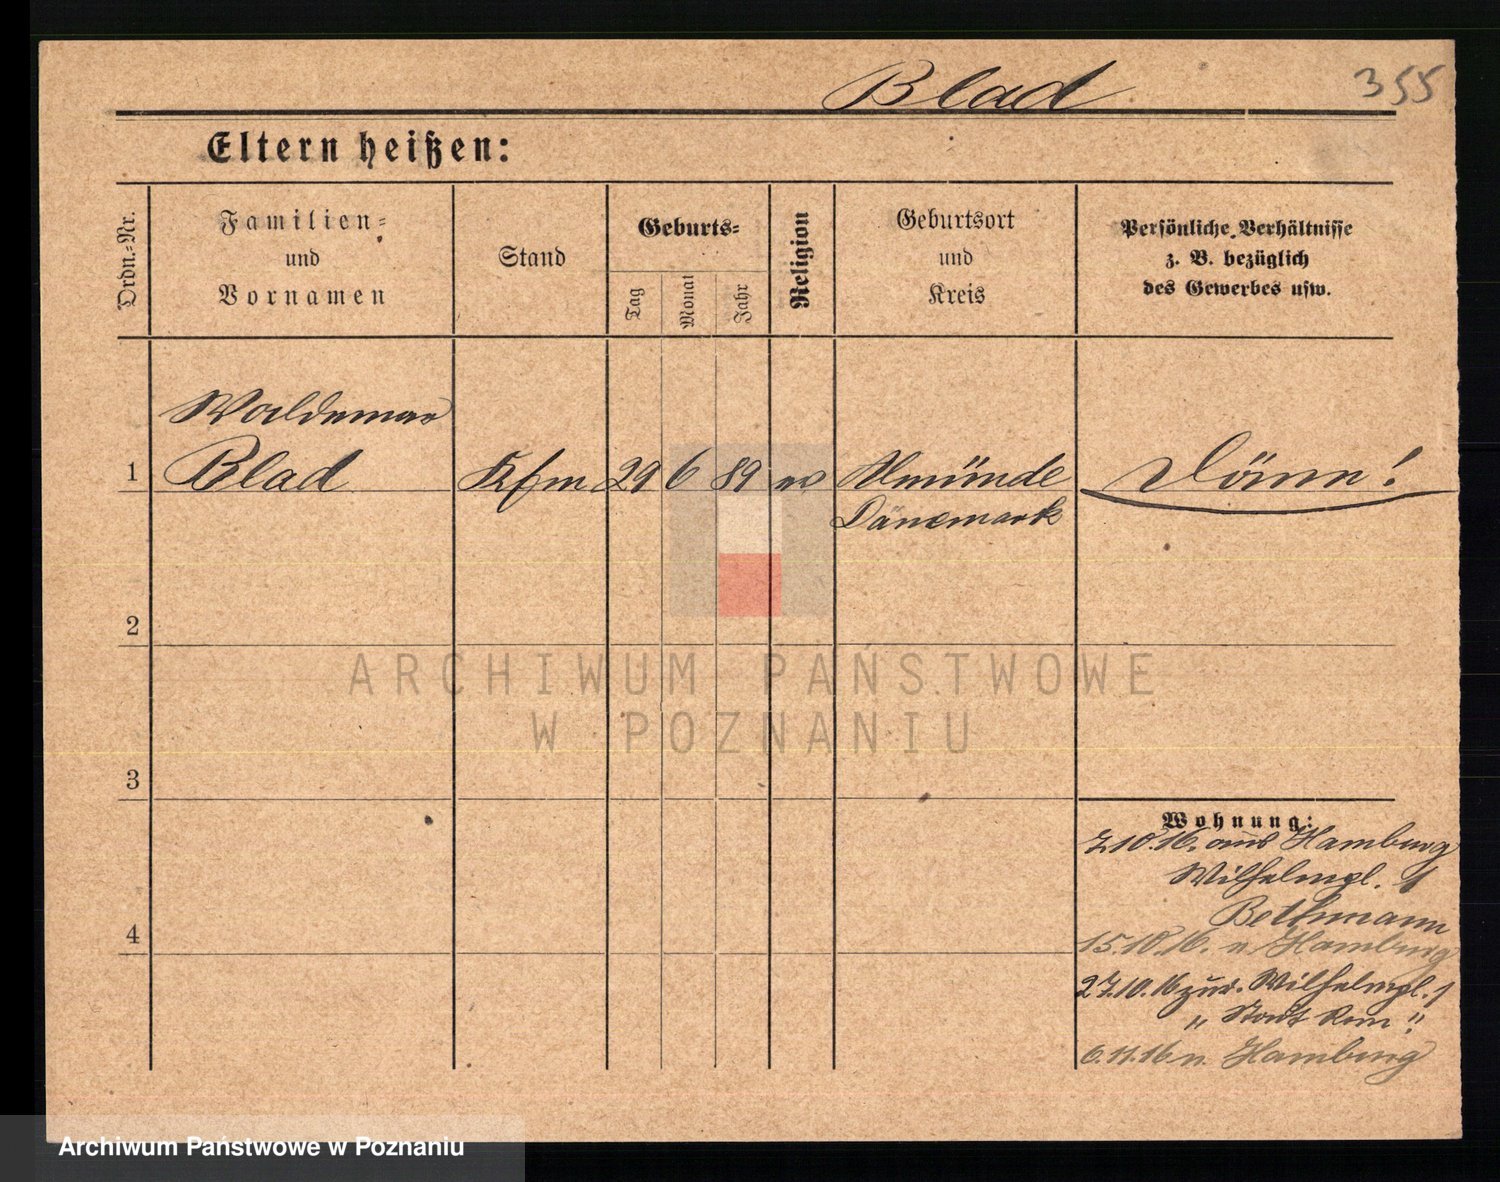 Blad
355
Eltern heißen:
Ordn.-Nr.
Familien-
und
Vornamen
Stand
Geburts-
Tag
Monat
Jahr
Religion
Geburtsort
und
Kreis
Persönliche Verhältnisse
z. B. bezüglich
des Gewerbes usw.
Waldemar
1 Blad Kfm 29 6 89 Almünde Däne!
Dänemark
2
3
4
Wohnung:
7.10.16. aus Hamburg
Wilhelmpl. 1
Bethmann
15.10.16. n. Hamburg
27.10.16 zur. Wilhelmpl. 1
" Stadt Rom "
6.11.16 n. Hamburg
ARCHIWUM PAŃSTWOWE
W POZNANIU
Archiwum Państwowe w Poznaniu